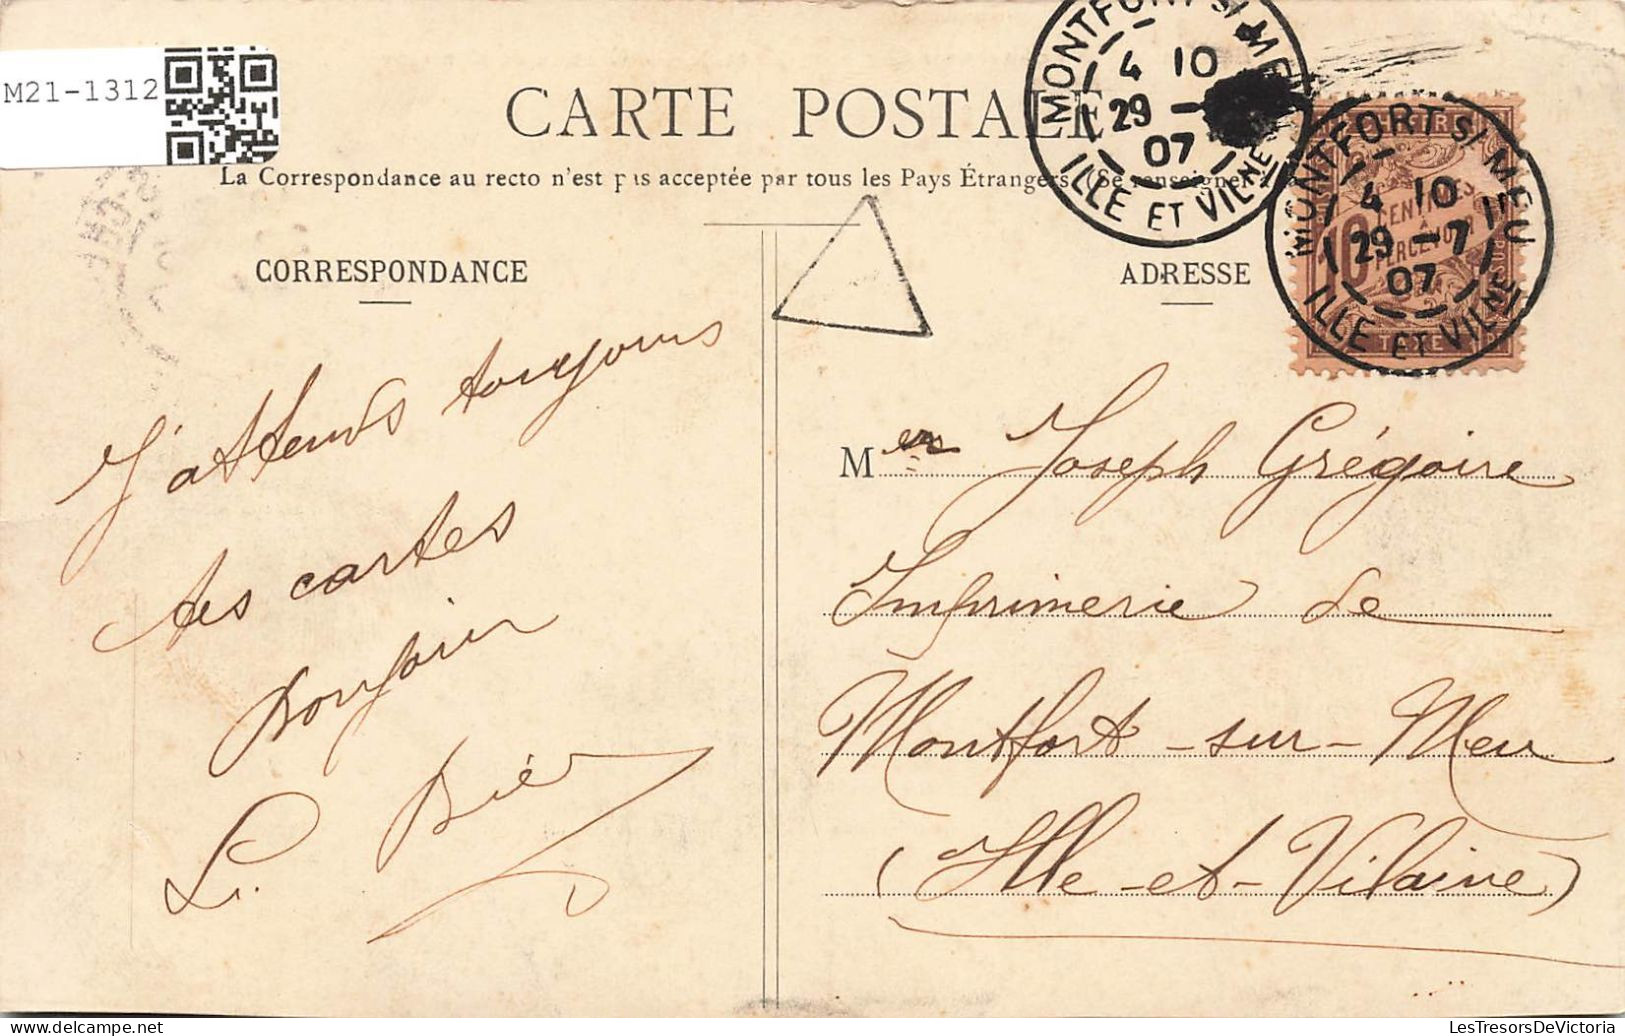 M21-1312
CARTE POSTALE
La Correspondance au recto n'est pas acceptée par tous les Pays Étrangers (Se renseigner à
CORRESPONDANCE
ADRESSE
MONTFORT S/ MEU
4 10
29 -
07
ILLE ET VILNE
MONTFORT S/ MEU
4 10
29 - 7
07
ILLE ET VILNE
10 CENTIMES
À
PERCEVOIR
TAXE
J'attends toujours
tes cartes
Bonjour
L. Bier
M Joseph Grégoire
Imprimerie de
Montfort-sur-Meu
(Ille-et-Vilaine)
LesTresorsDeVictoria
delcampe.net